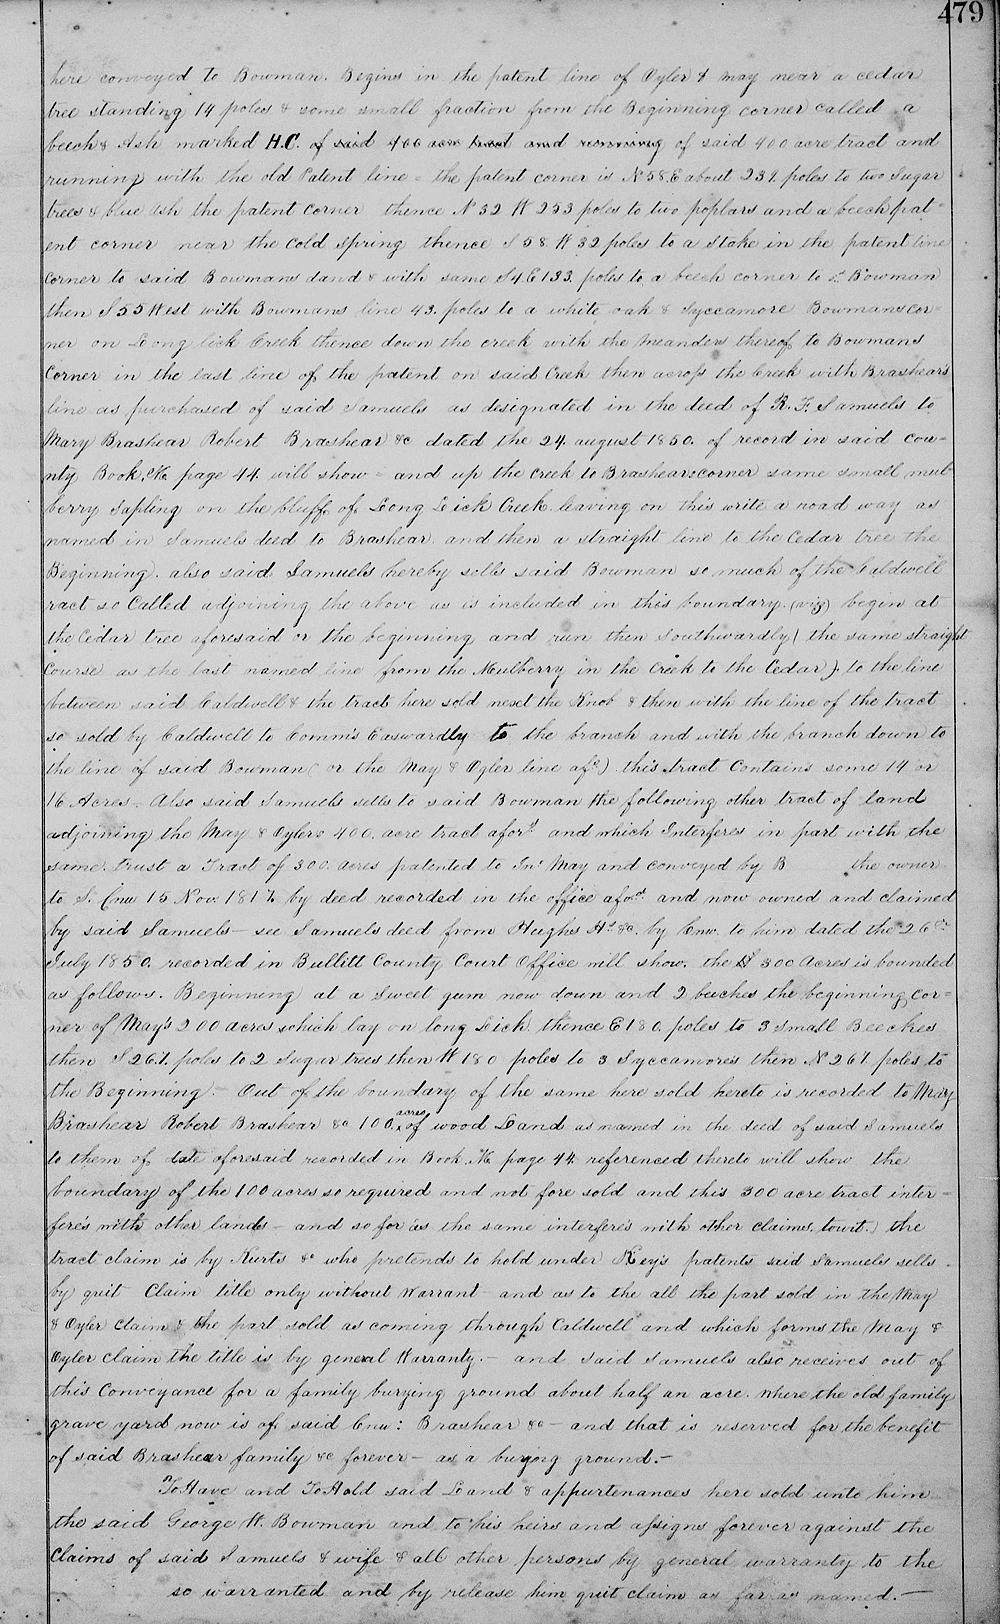 479
here conveyed to Bowman. Begins in the patent line of Oyler & May near a cedar
tree standing 14 poles & some small fraction from the Beginning corner called a
beech & Ash marked H.C. of said 400 acre tract and running of said 400 acre tract and
running with the old Patent line - the patent corner is N 58 E about 232 poles to two Sugar
trees & blue Ash the patent corner thence N 32 W 253 poles to two poplars and a beech pat-
ent corner near the Cold Spring thence S 58 W 32 poles to a Stake in the patent line
Corner to said Bowmans dand & with same S 4 E 133. poles to a beech corner to sd Bowman
then S 55 West with Bowmans line 43. poles to a white oak & Syccamore Bowmans cor-
ner on Long lick Creek thence down the creek with the meanders thereof to Bowmans
Corner in the last line of the patent on said Creek then across the Creek with Brashears
line as purchased of said Samuels as designated in the deed of R. F. Samuels to
Mary Brashear Robert Brashear &c dated the 24. august 1850. of record in said cou-
nty Book, K page 44. will show - and up the creek to Brashears corner same small mul
berry Sapling on the bluff of Long Lick Creek. leaving on this write a road way as
named in Samuels deed to Brashear. and then a straight line to the Cedar tree the
Beginning. also said Samuels hereby sells said Bowman so much of the Caldwell
ract so Called adjoining the above as is included in this boundary. (viz) begin at
the Cedar tree aforesaid or the beginning and run then Southwardly ( the same straight
Course as the last named line from the Mulberry in the Creek to the Cedar ) to the line
between said Caldwell & the tract here sold next the Knob & then with the line of the tract
so sold by Caldwell to Comm's Easwardly to the branch and with the branch down to
the line of said Bowman ( or the May & Oyler line afd ). this tract Contains some 14 or
16 Acres. Also said Samuels sells to said Bowman the following other tract of land
adjoining the May & Oylers 400. acre tract aford and which Interferes in part with the
same. trust a Tract of 300. acres patented to Jno May and conveyed by B the owner
to S. Crow 15 Nov. 1817 by deed recorded in the office afod. and now owned and claimed
by said Samuels - see Samuels deed from Hughs &c. by to him dated the 26th
July 1850. recorded in Bullitt County Court Office will show. the sd 300 Acres is bounded
as follows. Beginning at a Sweet gum now down and 2 beeches the beginning cor-
ner of May's 200 acres which lay on long Lick thence E 180. poles to 3 Small Beeches
then S 267. poles to 2 Sugar trees then W 180 poles to 3 Syccamores then N 267 poles to
the Beginning. - Out of the boundary of the same here sold hereto is recorded to Mary
Brashear Robert Brashear &c 100. acres of wood Land as named in the deed of said Samuels
to them of date aforesaid recorded in Book, K page 44. referenced thereto will show the
boundary of the 100 acres so required and not fore sold and this 300 acre tract inter-
feres with other lands - and so for as the same interferes with other claims, towit.) the
tract claim is by Kurts &c who pretends to hold under Key's patents said Samuels sells
by quit Claim title only without Warrant - and as to the all the part sold in the May
& Oyler claim & the part sold as coming through Caldwell and which forms the May &
Oyler claim the title is by general Warranty. - and said Samuels also receives out of
this Conveyance for a family burying ground about half an acre. Where the old family
grave yard now is of said : Brashear &c - and that is reserved for the benefit
of said Brashear family &c forever - as a burying ground. -
To Have and To Hold said Land & appurtenances here sold unto him
the said George W. Bowman and to his heirs and assigns forever against the
Claims of said Samuels & wife & all other persons by general warranty to the
so warranted and by release him quit claim as far as named. -